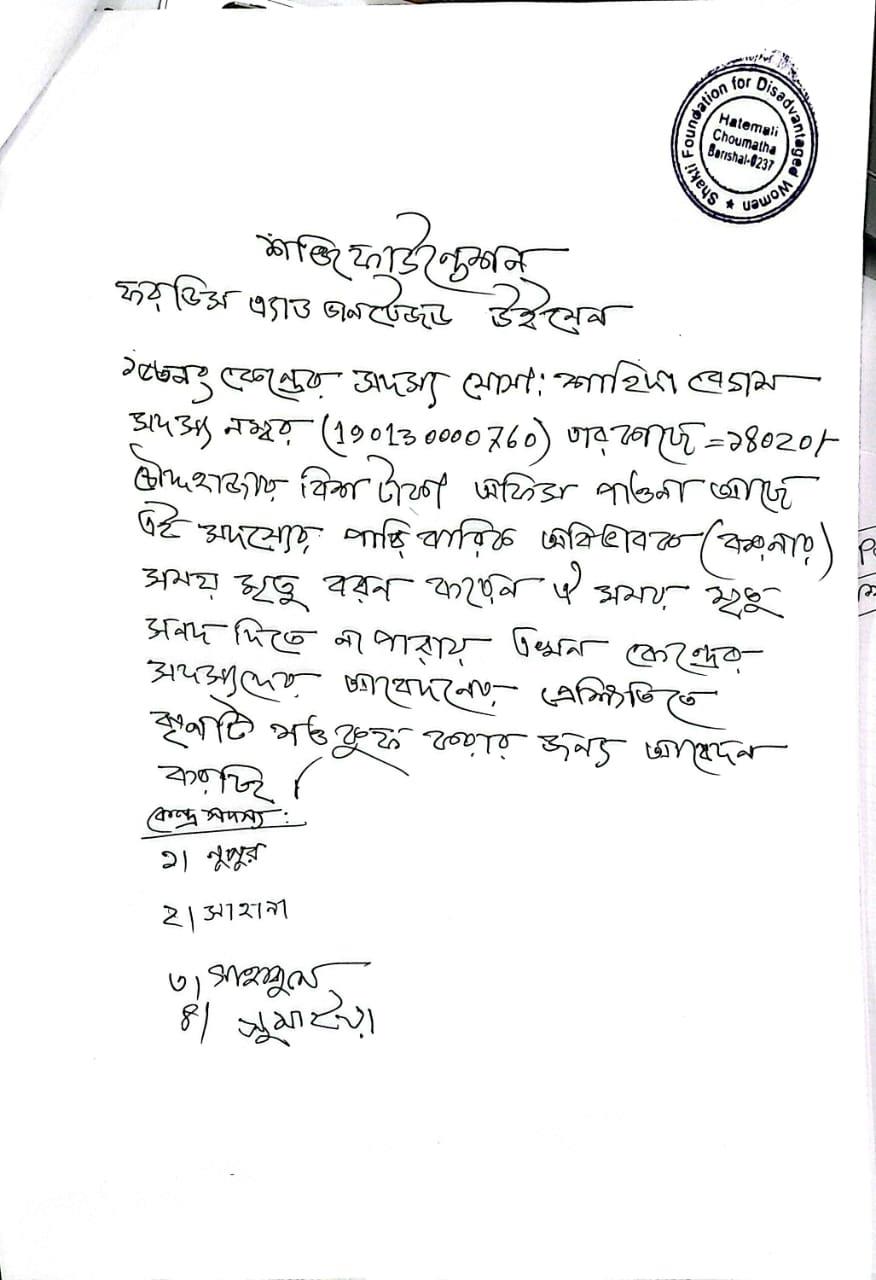 Shakti Foundation for Disadvantaged Women ★
Hatemali
Choumatha
Barishal-0237
শক্তি ফাউন্ডেশন
ফর ডিস এ্যাড ভানটেজড উইমেন
কেন্দ্রের সদস্য মোসা: শাহিদা বেগম
সদস্য নম্বর (190130000760) তার কাছে =১৪০২০/-
চৌদ্দহাজার বিশ টাকা অফিস পাওনা আছে
এই সদস্যের পারিবারিক অবিভাবক (করনার)
সময় মৃত্যু বরন করেন ঐ সময় মৃত্যু
সনদ দিতে না পারায় এখন কেন্দ্রের
সদস্যদের আবেদনের প্রেক্ষিতে
ঋনটি মওকুফ করার জন্য আবেদন
করছি।
কেন্দ্র সদস্য:
১। নুপুর
২। সাহানা
৩।
৪। সুমাইয়া